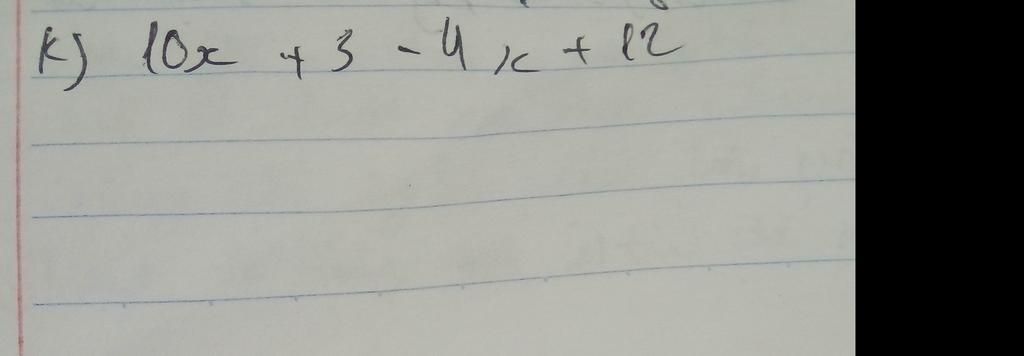 K) 10x + 3 - 4x + 12